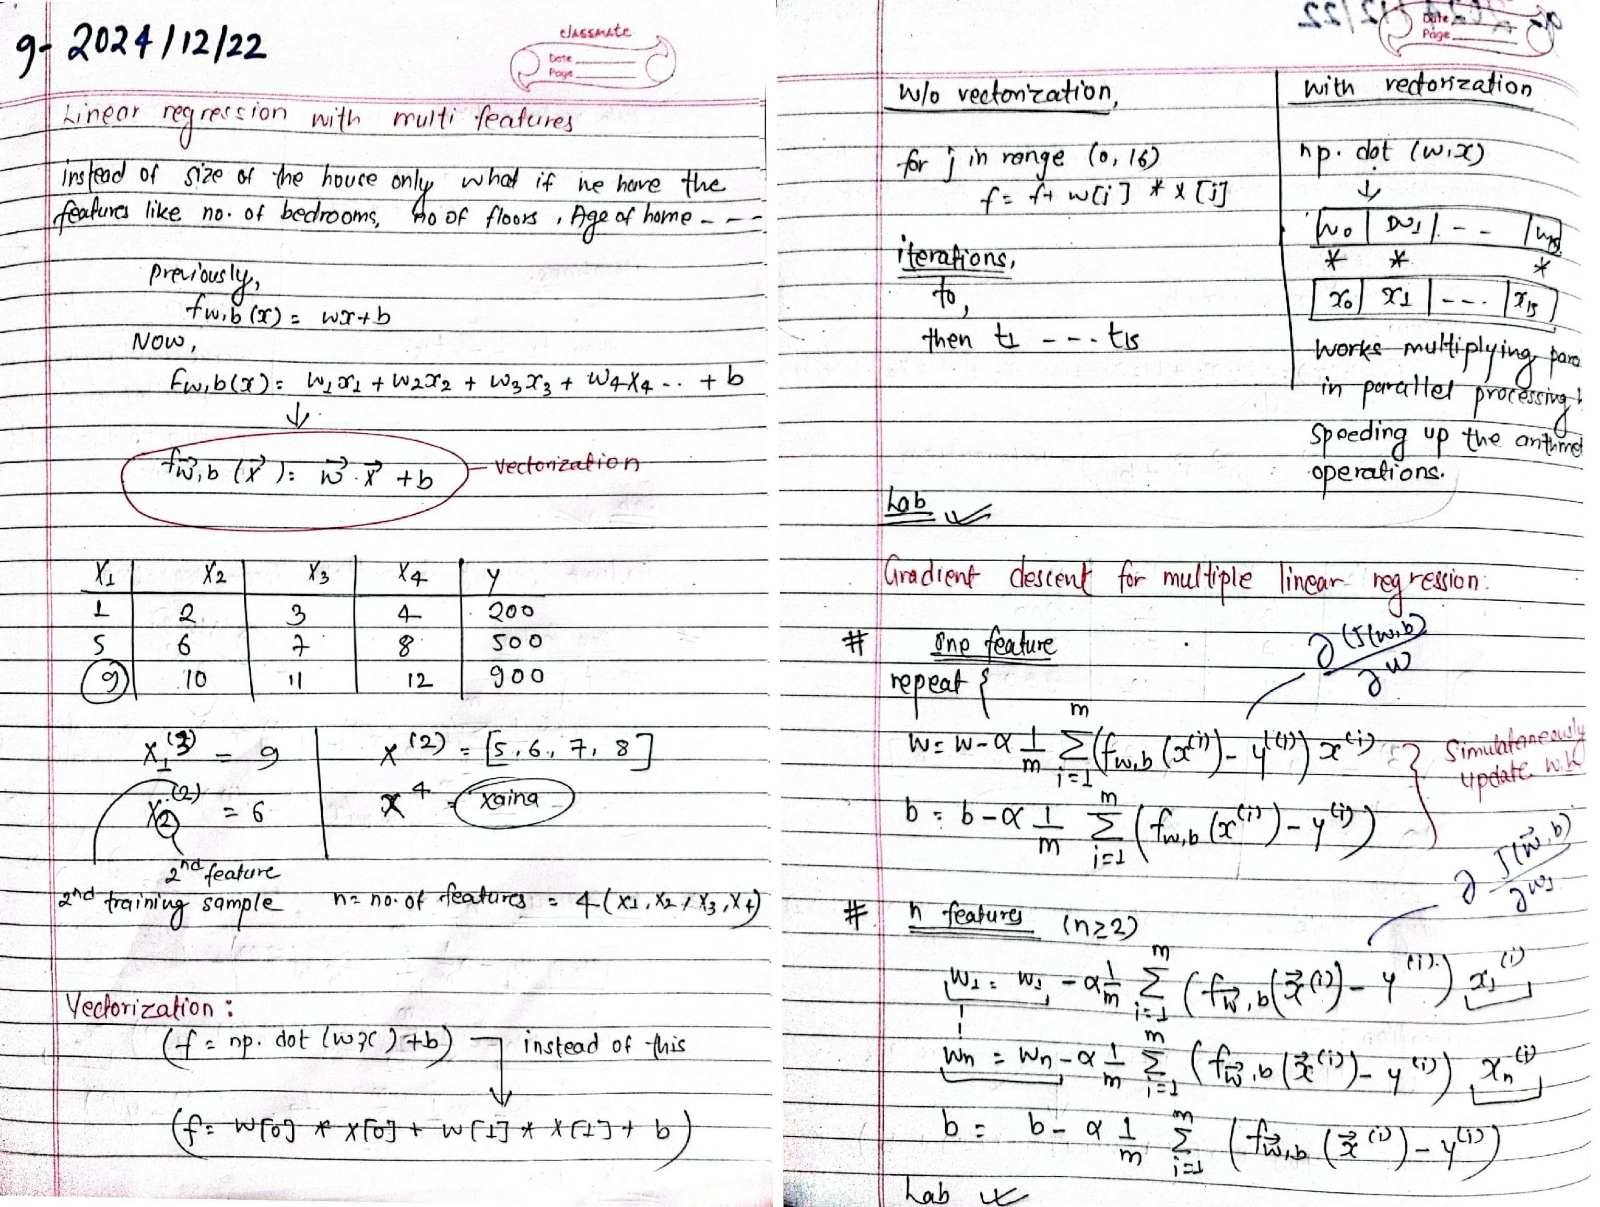 9- 2024/12/22
classmate
Date
Page
Linear regression with multi features
instead of size of the house only what if we have the
features like no. of bedrooms, no of floors, Age of home - - -
previously,
fw,b (x) = wx+b
Now,
fw,b(x) = w1x1 + w2x2 + w3x3 + w4x4 -.. + b
↓
fw⃗,b (x⃗) = w⃗ · x⃗ + b - vectorization
x1 x2 x3 x4 y
1 2 3 4 200
5 6 7 8 500
9 10 11 12 900
x1^(3) = 9
x2^(2) = 6
2nd feature
2nd training sample
x^(2) = [5, 6, 7, 8]
x^4 = xaina
n = no. of features = 4 (x1, x2, x3, x4)
Vectorization :
(f = np. dot (w,x) + b) instead of this
↓
(f = w[0] * x[0] + w[1] * x[1] + b)
Date
Page
w/o vectorization,
for j in range (0, 16)
f = f + w[j] * x[j]
iterations,
to,
then t1 - - - t15
with vectorization
np. dot (w,x)
↓
w0 | w1 | - - | w15
* * *
x0 | x1 | - - . | x15
works multiplying para
in parallel processing
speeding up the arithmet
operations.
Lab ✓
Gradient descent for multiple linear regression:
# one feature
repeat {
∂(J(w,b)
∂w
w = w - α 1/m Σ_{i=1}^{m} (fw,b (x^(i)) - y^(i)) x^(i)
b = b - α 1/m Σ_{i=1}^{m} (fw,b (x^(i)) - y^(i))
} Simulataneously
update w,b
∂ J(w⃗,b)
∂w1
# n features (n≥2)
w1 = w1 - α 1/m Σ_{i=1}^{m} (fw⃗,b(x⃗^(i)) - y^(i)) x1^(i)
wn = wn - α 1/m Σ_{i=1}^{m} (fw⃗,b(x⃗^(i)) - y^(i)) xn^(i)
b = b - α 1/m Σ_{i=1}^{m} (fw⃗,b (x⃗^(i)) - y^(i))
Lab ✓